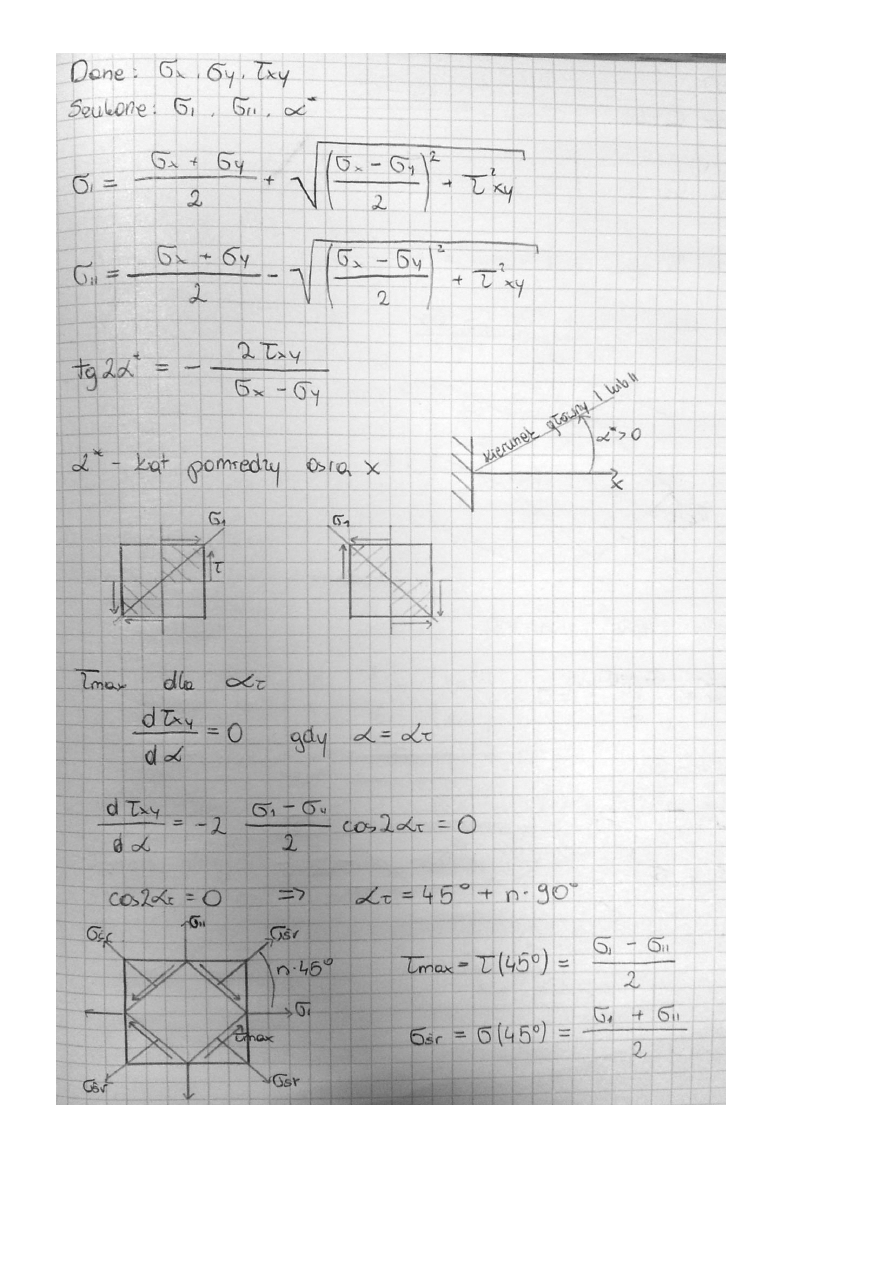 Dane: σx, σy, τxy
Szukane: σI, σII, α*
σI = (σx + σy)/2 + √(((σx - σy)/2)² + τ²xy)
σII = (σx + σy)/2 - √(((σx - σy)/2)² + τ²xy)
tg2α* = - 2τxy/(σx - σy)
kierunek główny I lub II
α*>0
x
α* - kąt pomiedzy osia x
σ1
τ
σ1
τmax dla ατ
dτxy/dα = 0 gdy α = ατ
dτxy/dα = -2 (σ1 - σ11)/2 cos2ατ = 0
cos2ατ = 0 => ατ = 45° + n·90°
σśr σII σśr
n·45°
σI
τmax
σśr σśr
τmax = τ(45°) = (σI - σII)/2
σśr = σ(45°) = (σI + σII)/2